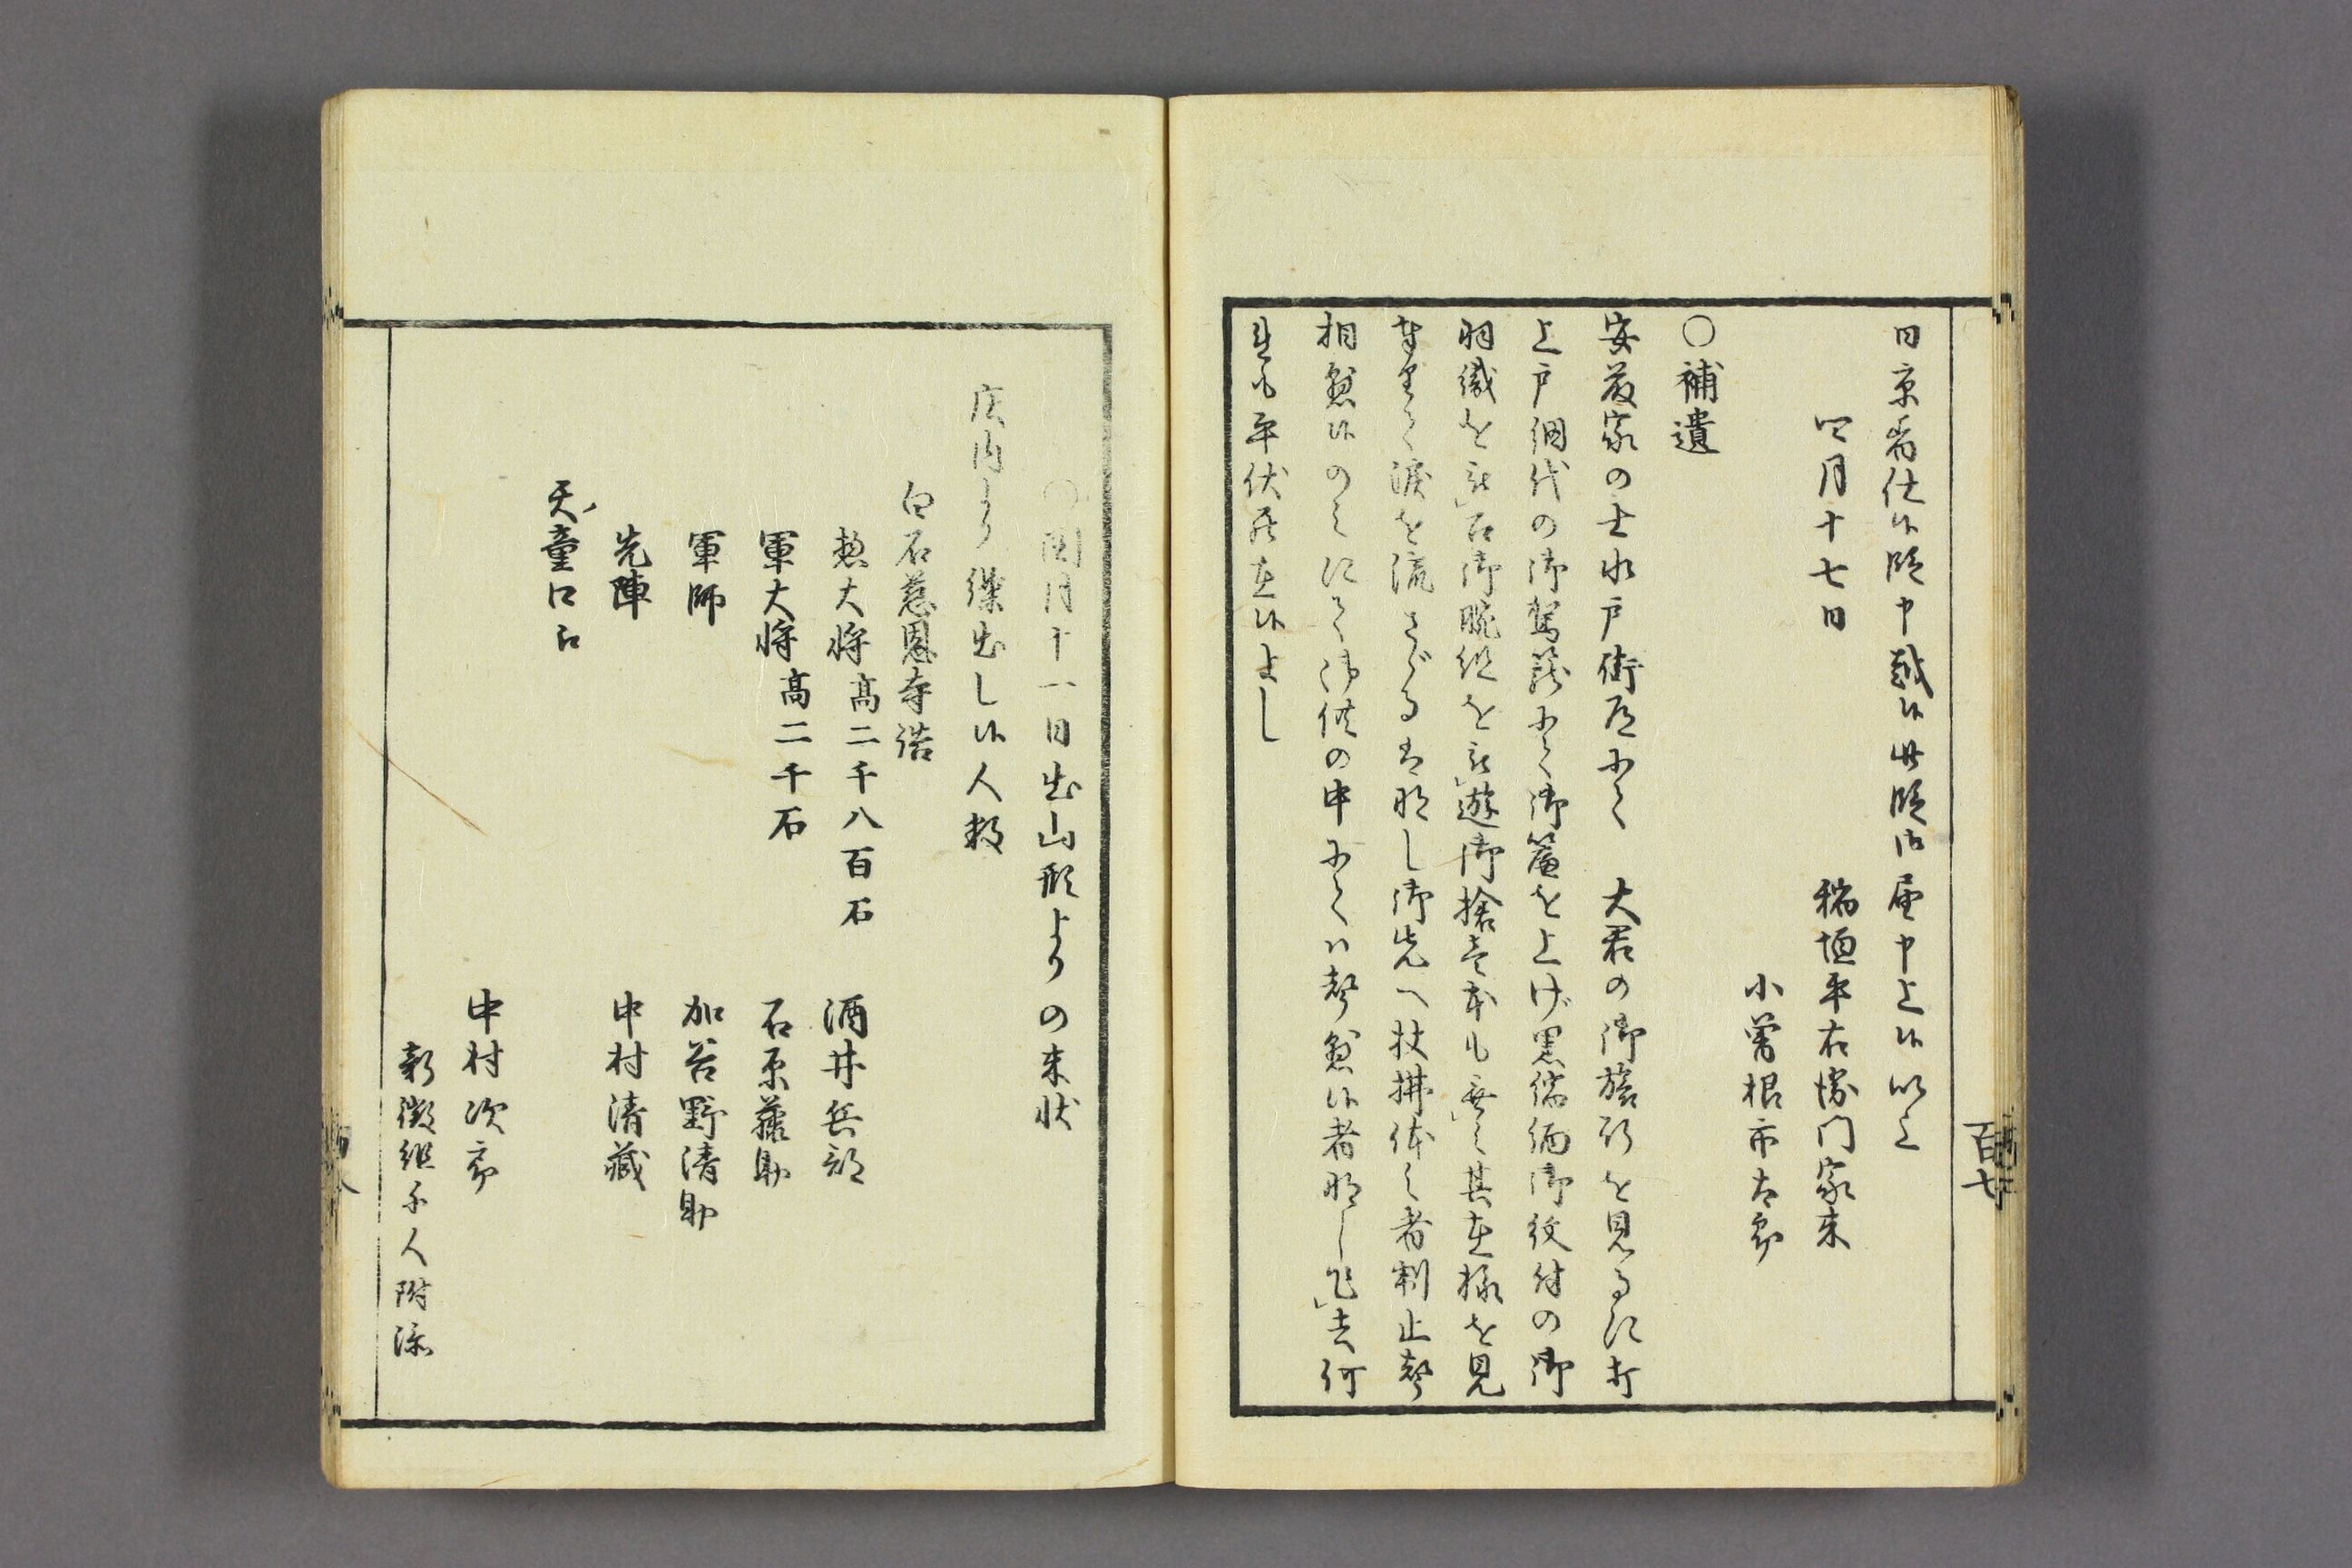 日京着仕候段申越候此段御届申上候以上
四月十七日
稲垣平右衛門家来
小曽根市太郎
○補遺
安藤家の士水戸街道にて 大君の御旅行を見るに打
上戸網代の御駕籠にて御簾を上げ黒縮緬御紋付の御
羽織を被召御腕組を被遊御搶壱本も無之其在様を見
奉りて涙を流さゞるは那し御先へ杖拂体之者制止聲
相懸候のミにて御供の中にてハ聲懸候者那し乍去何
れも平伏罷在候よし
百七
○閏月十一日出山形よりの来状
庄内より繰出し候人数
白石慈恩寺詰
惣大将高二千八百石
酒井兵部
軍大将高二千石
石原藤助
軍師
加茂野清助
先陣
中村清蔵
天童口
中村次郎
新徴組千人附添